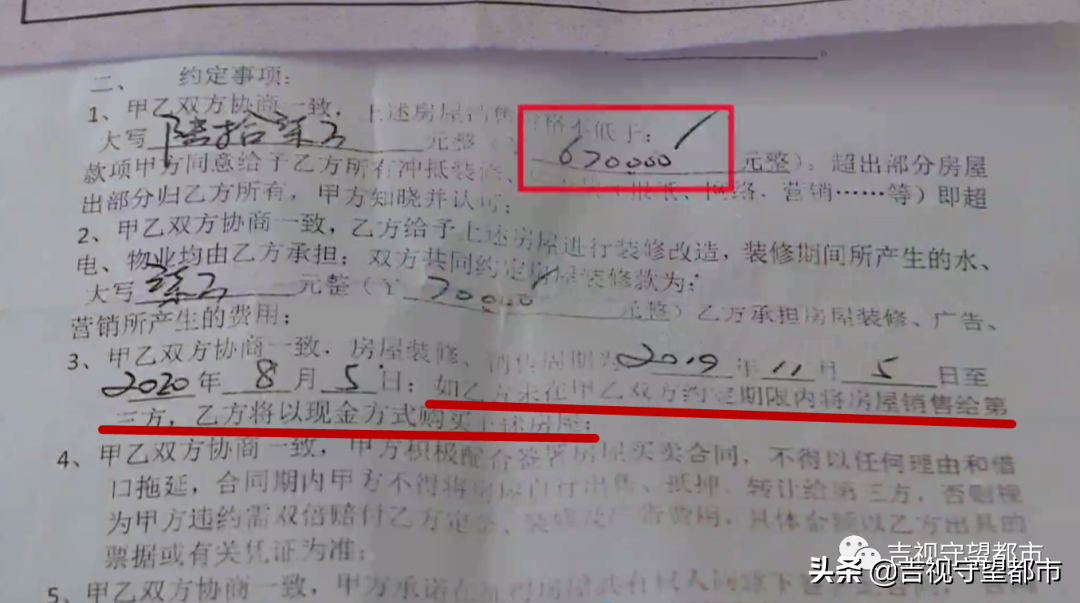 二、 约定事项：
1、甲乙双方协商一致，上述房屋销售价格不低于：
大写陆拾柒万元整（ 670000 元整）；超出部分房屋
款项甲方同意给予乙方所有冲抵装修、 （报纸、网络、营销……等）即超
出部分归乙方所有，甲方知晓并认可；
2、甲乙双方协商一致，乙方给予上述房屋进行装修改造，装修期间所产生的水、
电、物业均由乙方承担；双方共同约定房屋装修款为：
大写柒万元整（￥70000元整）乙方承担房屋装修、广告、
营销所产生的费用；
3、甲乙双方协商一致，房屋装修、销售周期为2019年11月5日至
2020年8月5日；如乙方未在甲乙双方约定期限内将房屋销售给第
三方，乙方将以现金方式购买上述房屋；
4、甲乙双方协商一致，甲方积极配合签署房屋买卖合同，不得以任何理由和借
口拖延，合同期内甲方不得将房屋自行出售、抵押、转让给第三方，否则视
为甲方违约需双倍赔付乙方定金、装修及广告费用，具体金额以乙方出具的
票据或有关凭证为准；
5、甲乙双方协商一致，甲方承诺在
吉视守望都市
头条 @吉视守望都市